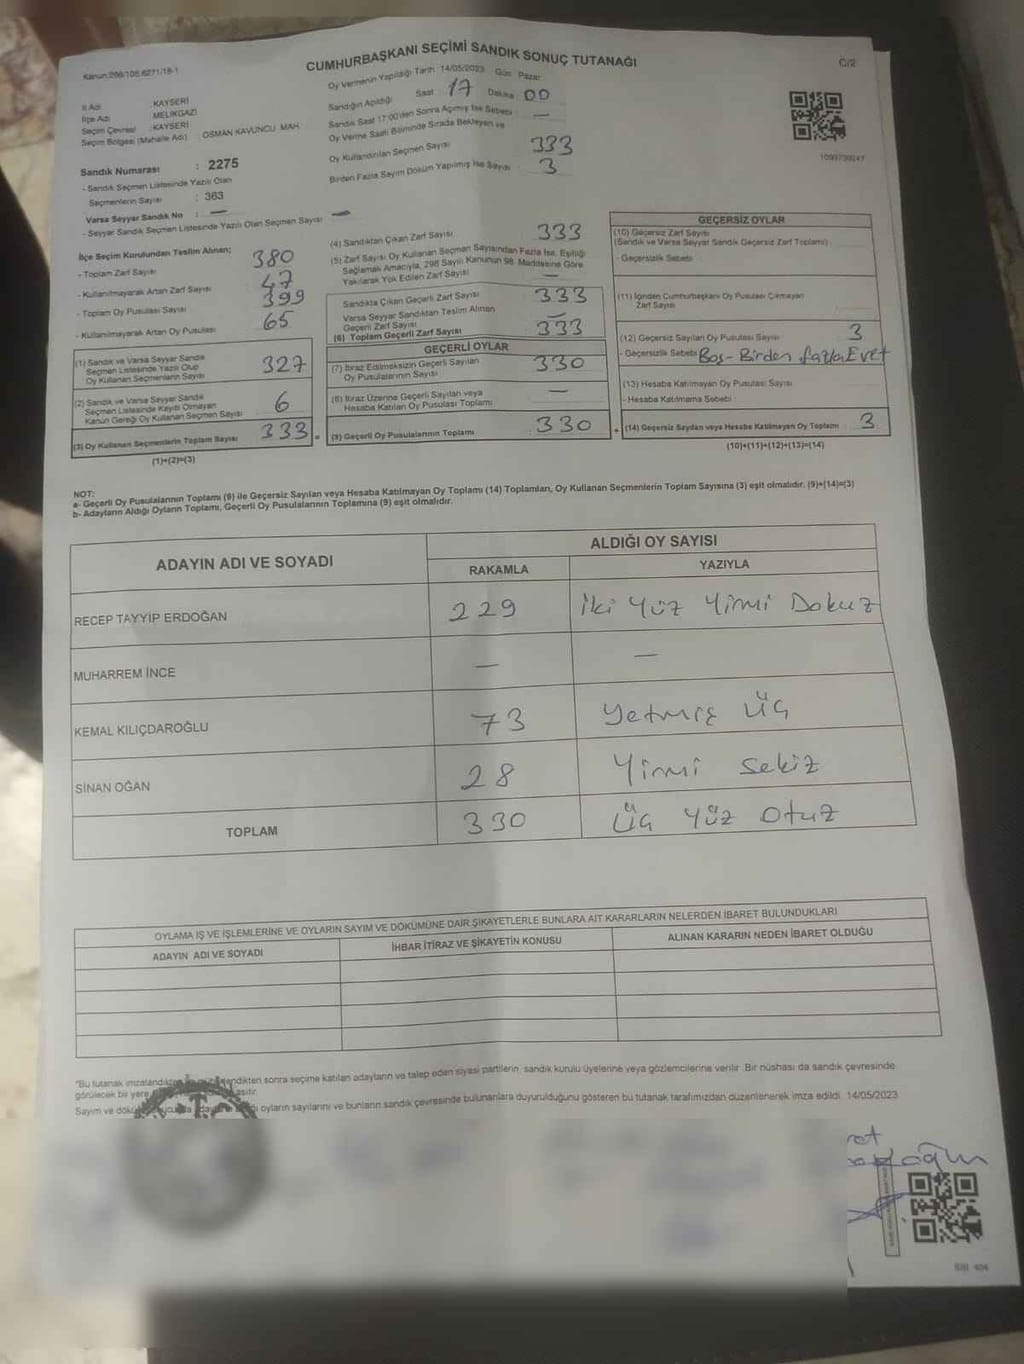 Kanun:298/105,6271/18-1
CUMHURBAŞKANI SEÇİMİ SANDIK SONUÇ TUTANAĞI
Ç/2
Oy Vermenin Yapıldığı Tarih :14/05/2023 Gün Pazar
İl Adı : KAYSERİ
İlçe Adı : MELİKGAZİ
Seçim Çevresi : KAYSERİ
Seçim Bölgesi (Mahalle Adı) : OSMAN KAVUNCU MAH.
Sandığın Açıldığı Saat 17 Dakika 00
Sandık Saat 17:00'den Sonra Açılmış İse Sebebi : —
Oy Verme Saati Bitiminde Sırada Bekleyen ve
Oy Kullandırılan Seçmen Sayısı 333
Birden Fazla Sayım Döküm Yapılmış İse Sayısı : 3
Sandık Numarası : 2275
- Sandık Seçmen Listesinde Yazılı Olan
Seçmenlerin Sayısı : 363
Varsa Seyyar Sandık No : —
- Seyyar Sandık Seçmen Listesinde Yazılı Olan Seçmen Sayısı —
İlçe Seçim Kurulundan Teslim Alınan;
- Toplam Zarf Sayısı 380
- Kullanılmayarak Artan Zarf Sayısı 47
- Toplam Oy Pusulası Sayısı 399
- Kullanılmayarak Artan Oy Pusulası 65
(1) Sandık ve Varsa Seyyar Sandık
Seçmen Listesinde Yazılı Olup
Oy Kullanan Seçmenlerin Sayısı 327
(2) Sandık ve Varsa Seyyar Sandık
Seçmen Listesinde Kayıtlı Olmayan
Kanun Gereği Oy Kullanan Seçmen Sayısı 6
(3) Oy Kullanan Seçmenlerin Toplam Sayısı 333
(1)+(2)=(3)
(4) Sandıktan Çıkan Zarf Sayısı 333
(5) Zarf Sayısı Oy Kullanan Seçmen Sayısından Fazla İse, Eşitliği
Sağlamak Amacıyla, 298 Sayılı Kanunun 98. Maddesine Göre
Yakılarak Yok Edilen Zarf Sayısı —
Sandıkta Çıkan Geçerli Zarf Sayısı 333
Varsa Seyyar Sandıktan Teslim Alınan
Geçerli Zarf Sayısı —
(6) Toplam Geçerli Zarf Sayısı 333
GEÇERLİ OYLAR
(7) İtiraz Edilmeksizin Geçerli Sayılan
Oy Pusulalarının Sayısı 330
(8) İtiraz Üzerine Geçerli Sayılan veya
Hesaba Katılan Oy Pusulası Toplamı —
= (9) Geçerli Oy Pusulalarının Toplamı 330
GEÇERSİZ OYLAR
(10) Geçersiz Zarf Sayısı
(Sandık ve Varsa Seyyar Sandık Geçersiz Zarf Toplamı)
- Geçersizlik Sebebi
(11) İçinden Cumhurbaşkanı Oy Pusulası Çıkmayan
Zarf Sayısı
(12) Geçersiz Sayılan Oy Pusulası Sayısı 3
- Geçersizlik Sebebi Boş - Birden fazla Evet
(13) Hesaba Katılmayan Oy Pusulası Sayısı
- Hesaba Katılmama Sebebi
+ (14) Geçersiz Sayılan veya Hesaba Katılmayan Oy Toplamı 3
(10)+(11)+(12)+(13)=(14)
NOT:
a- Geçerli Oy Pusulalarının Toplamı (9) ile Geçersiz Sayılan veya Hesaba Katılmayan Oy Toplamı (14) Toplamları, Oy Kullanan Seçmenlerin Toplam Sayısına (3) eşit olmalıdır. (9)+(14)=(3)
b- Adayların Aldığı Oyların Toplamı, Geçerli Oy Pusulalarının Toplamına (9) eşit olmalıdır.
ADAYIN ADI VE SOYADI
ALDIĞI OY SAYISI
RAKAMLA YAZIYLA
RECEP TAYYİP ERDOĞAN 229 İki Yüz Yirmi Dokuz
MUHARREM İNCE — —
KEMAL KILIÇDAROĞLU 73 Yetmiş Üç
SİNAN OĞAN 28 Yirmi Sekiz
TOPLAM 330 Üç Yüz Otuz
OYLAMA İŞ VE İŞLEMLERİNE VE OYLARIN SAYIM VE DÖKÜMÜNE DAİR ŞİKAYETLERLE BUNLARA AİT KARARLARIN NELERDEN İBARET BULUNDUKLARI
ADAYIN ADI VE SOYADI İHBAR İTİRAZ VE ŞİKAYETİN KONUSU ALINAN KARARIN NEDEN İBARET OLDUĞU
"Bu tutanak imzalandıktan sonra seçime katılan adayların ve talep eden siyasi partilerin sandık kurulu üyelerine veya gözlemcilerine verilir. Bir nüshası da sandık çevresinde
görülecek bir yere asılır.
Sayım ve döküm oyların sayılarını ve bunların sandık çevresinde bulunanlara duyurulduğunu gösteren bu tutanak tarafımızdan düzenlenerek imza edildi. 14/05/2023